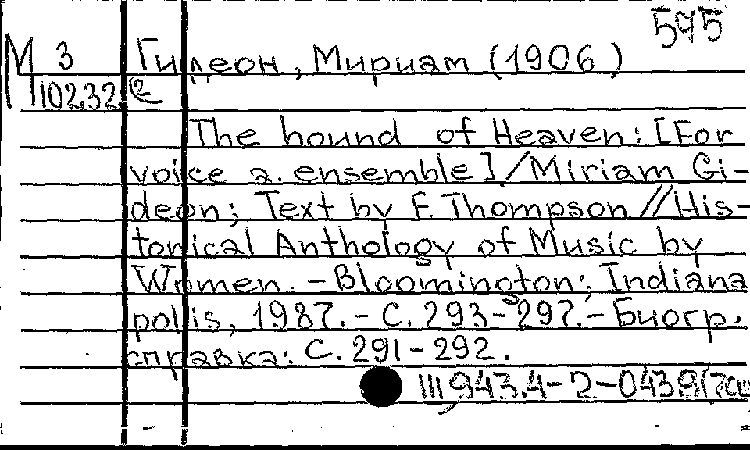 595
М 3 Гидеон, Мириам (1906 )
10232 е
The hound of Heaven: [For
voice a. ensemble] / Miriam Gi-
deon; Text by F. Thompson // His-
torical Anthology of Music by
Women. - Bloomington; Indiana
polis, 1987. - С. 293-297. - Биогр.
справка: С. 291-292.